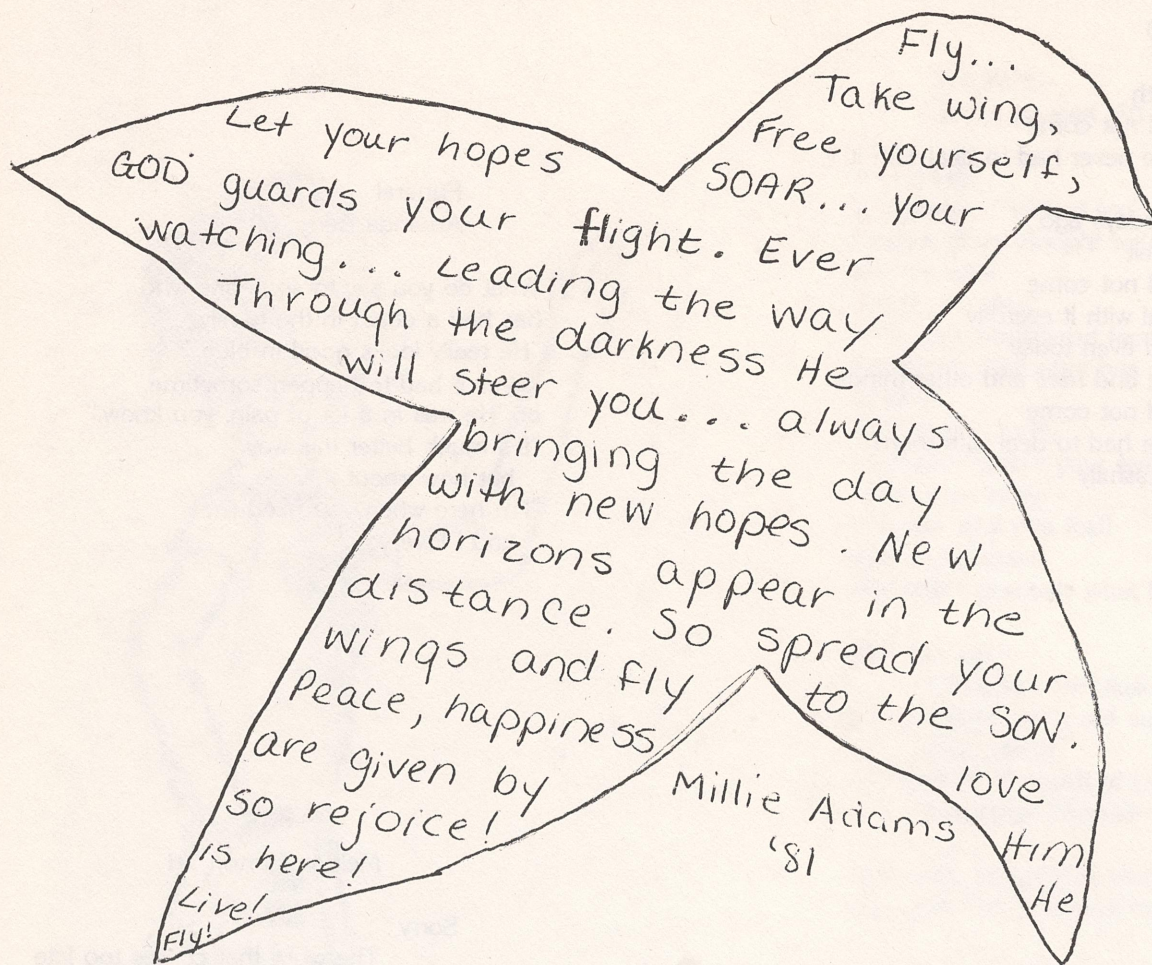 Fly...
Take wing,
Free yourself,
Let your hopes SOAR... your
GOD guards your flight. Ever
watching... Leading the way
Through the darkness He
will steer you... always
bringing the day
with new hopes. New
horizons appear in the
distance. So spread your
wings and fly to the SON.
Peace, happiness love
are given by Him
so rejoice! He
is here!
Live!
Fly!
Millie Adams
'81